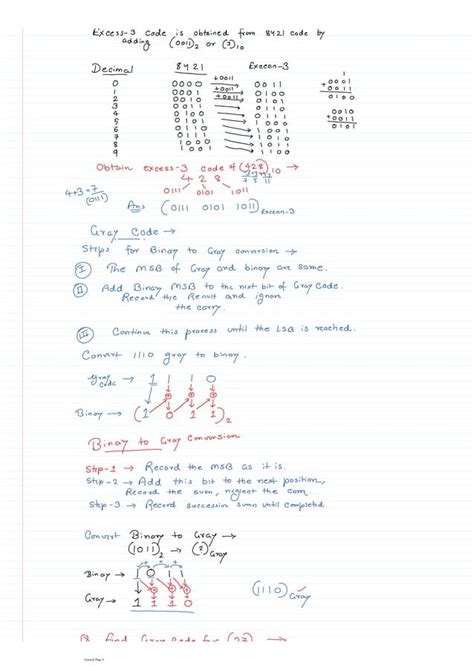 Excess-3 Code is obtained from 8421 code by
adding (0011)2 or (3)10
Decimal 8421 Excess-3
0 0000 +0011 0011
1 0001 +0011 0100
2 0010 +0011 0101
3 0011 0110
4 0100 0111
5 0101 1000
6 0110 1001
7 0111 1010
8 1000 1011
9 1001 1100
Obtain excess-3 code of (428)10 →
4 2 8
4+3=7
(0111)
0111 0101 1011
Ans (0111 0101 1011)Excess-3
Gray Code →
Steps for Binary to Gray conversion →
I The MSB of Gray and binary are same.
II Add Binary MSB to the next bit of Gray Code.
Record the Result and ignore
the carry.
III Continue this process until the LSB is reached.
Convert 1110 gray to binary.
Gray code → 1 1 1 0
Binary → (1 0 1 1)2
Binary to Gray Conversion
Step-1 → Record the MSB as it is.
Step-2 → Add this bit to the next position,
Record the sum, neglect the
Step-3 → Record succession sum until completed
Convert Binary to Gray →
(1011)2 → (?)Gray
Binary → 1 0 1 1
Gray → 1 1 1 0
(1110)Gray
find Gray Code for